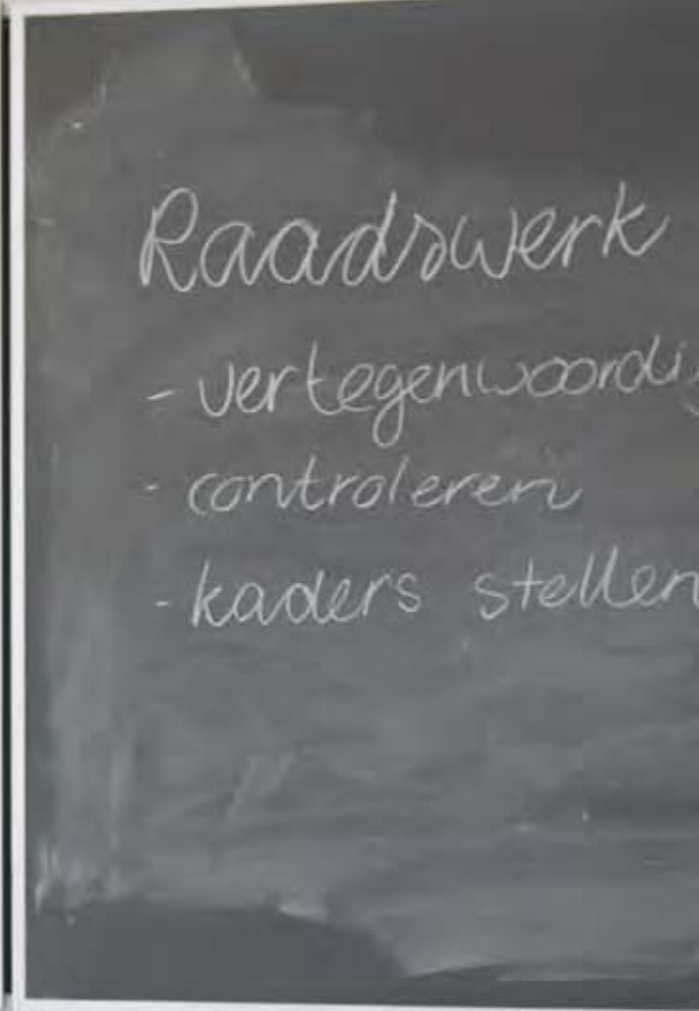 Raadswerk
- vertegenwoordi
- controleren
- kaders stellen